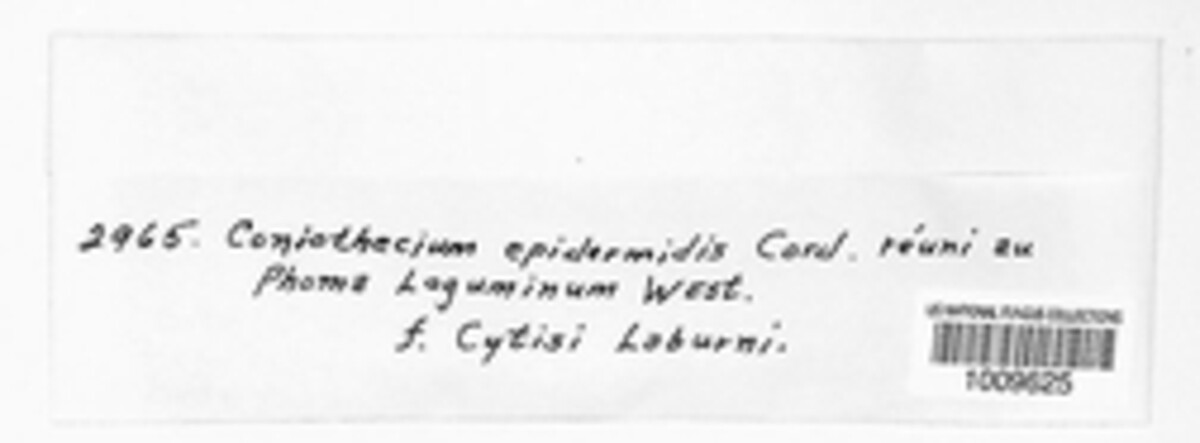 2965. Coniothecium epidermidis Cord. réuni au
Phoma Leguminum West.
f. Cytisi Laburni.
US NATIONAL FUNGUS COLLECTIONS
1009625